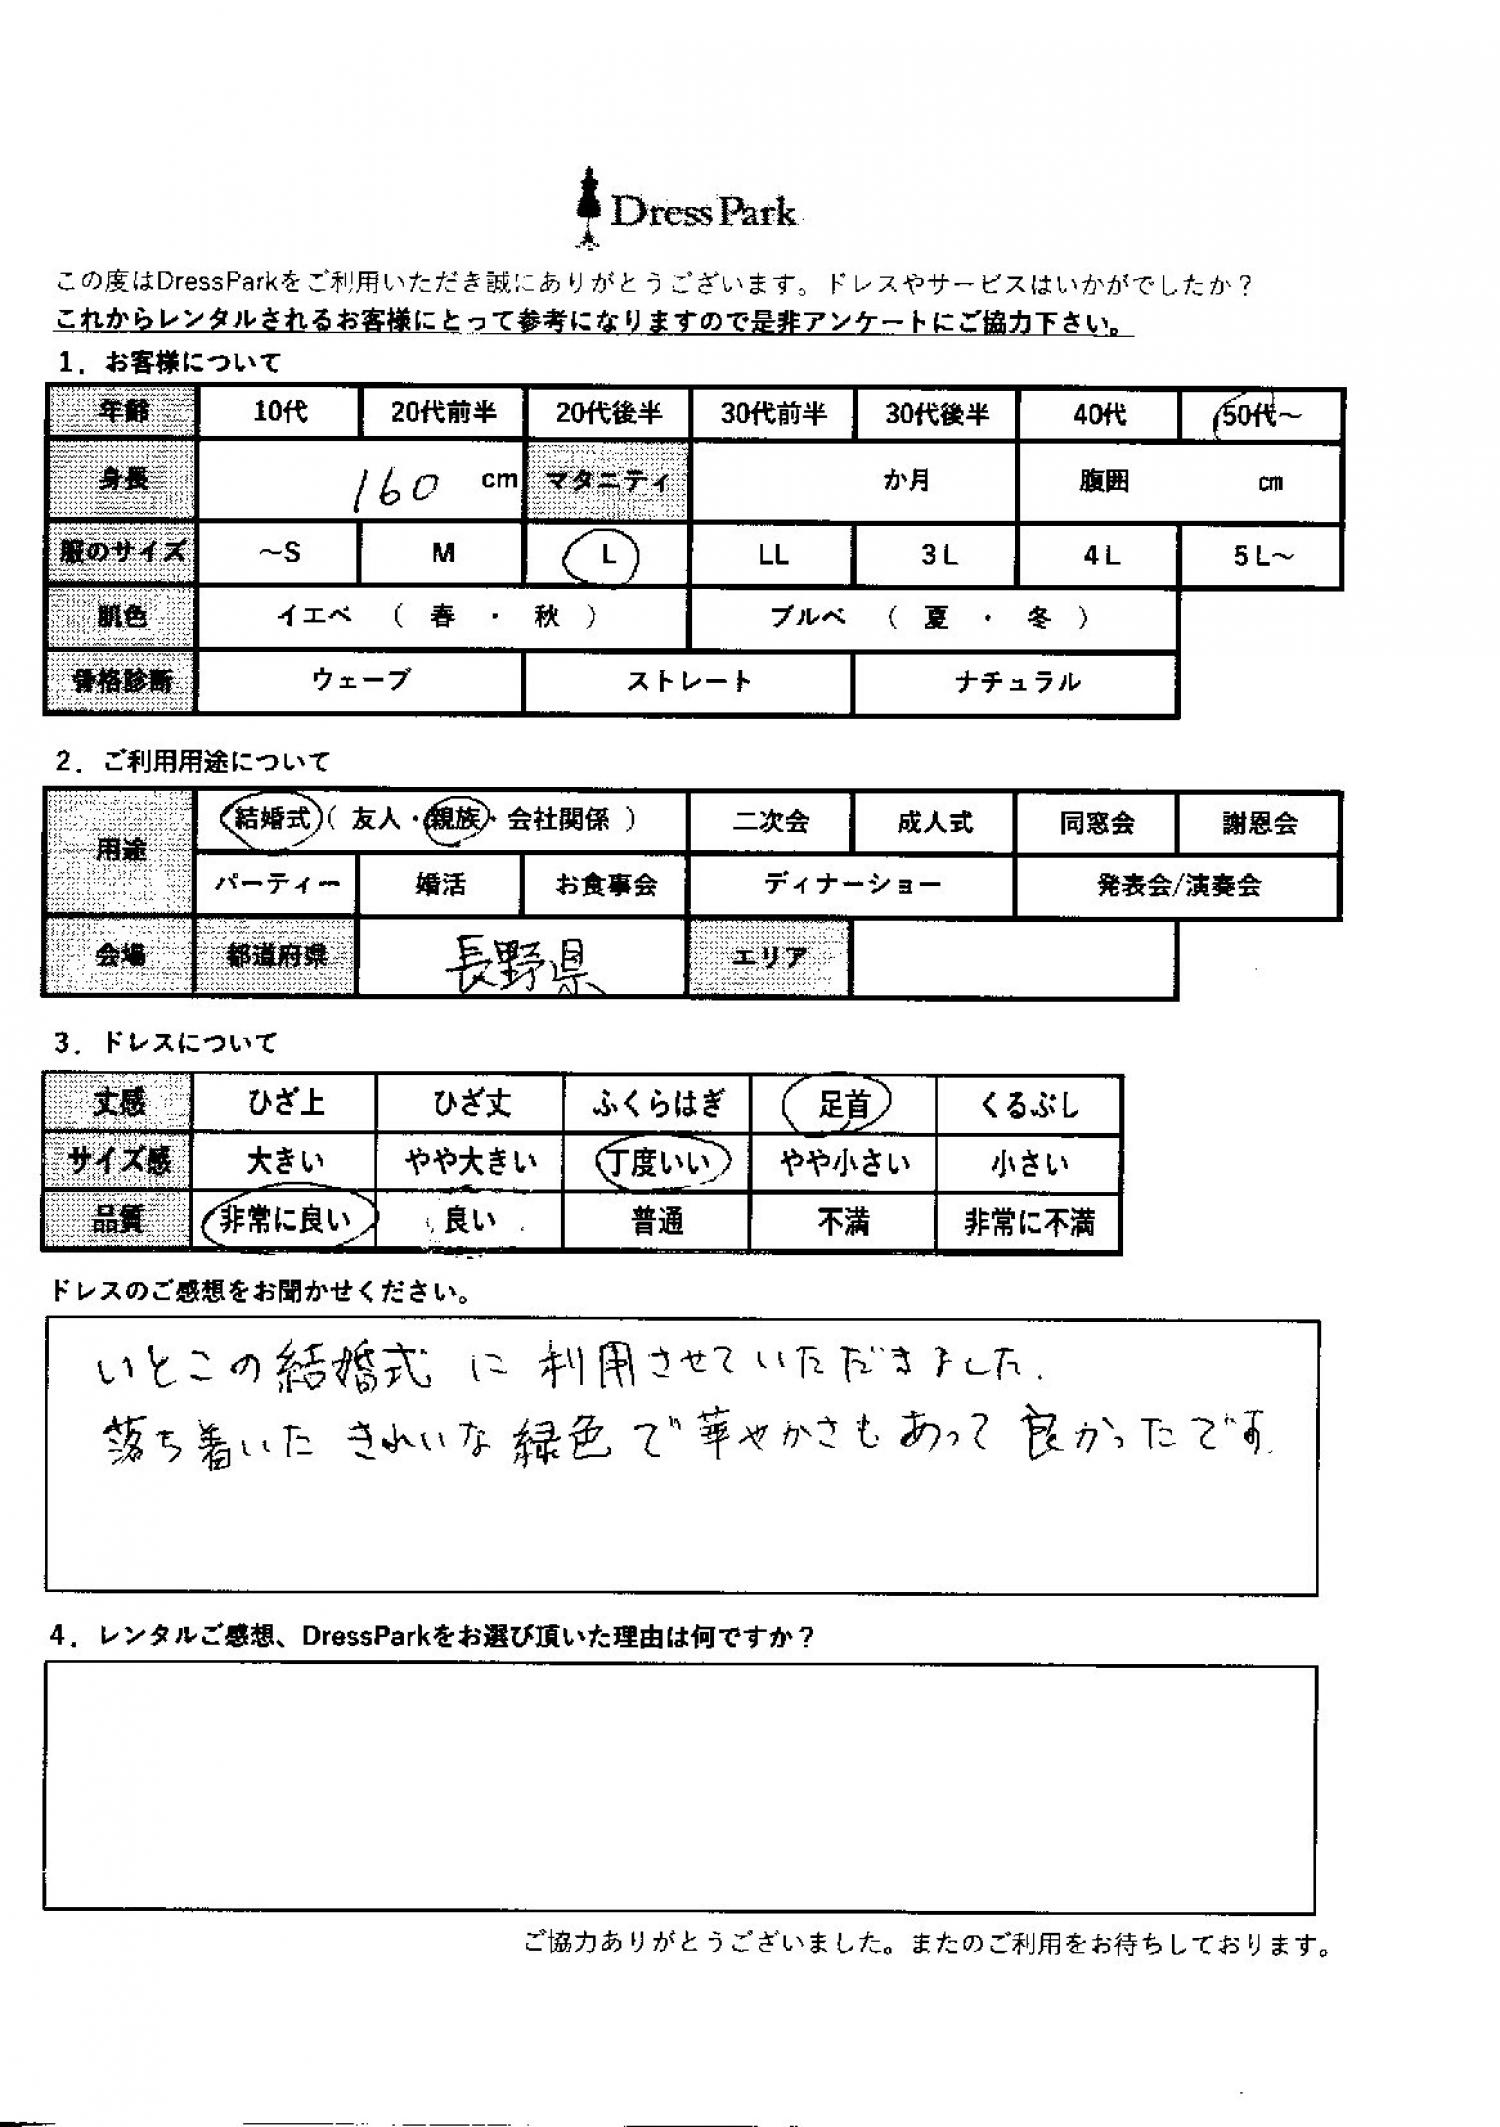 DressPark
この度はDressParkをご利用いただき誠にありがとうございます。ドレスやサービスはいかがでしたか？
これからレンタルされるお客様にとって参考になりますので是非アンケートにご協力下さい。
1．お客様について
年齢 10代 20代前半 20代後半 30代前半 30代後半 40代 50代～
身長 160 cm マタニティ か月 腹囲 cm
服のサイズ ～S M L LL 3L 4L 5L～
肌色 イエベ （ 春 ・ 秋 ） ブルベ （ 夏 ・ 冬 ）
骨格診断 ウェーブ ストレート ナチュラル
2．ご利用用途について
用途 結婚式（ 友人・親族・会社関係 ） 二次会 成人式 同窓会 謝恩会
パーティー 婚活 お食事会 ディナーショー 発表会/演奏会
会場 都道府県 長野県 エリア
3．ドレスについて
丈感 ひざ上 ひざ丈 ふくらはぎ 足首 くるぶし
サイズ感 大きい やや大きい 丁度いい やや小さい 小さい
品質 非常に良い 良い 普通 不満 非常に不満
ドレスのご感想をお聞かせください。
いとこの結婚式に利用させていただきました.
落ち着いたきれいな緑色で華やかさもあって良かったです.
4．レンタルご感想、DressParkをお選び頂いた理由は何ですか？
ご協力ありがとうございました。またのご利用をお待ちしております。